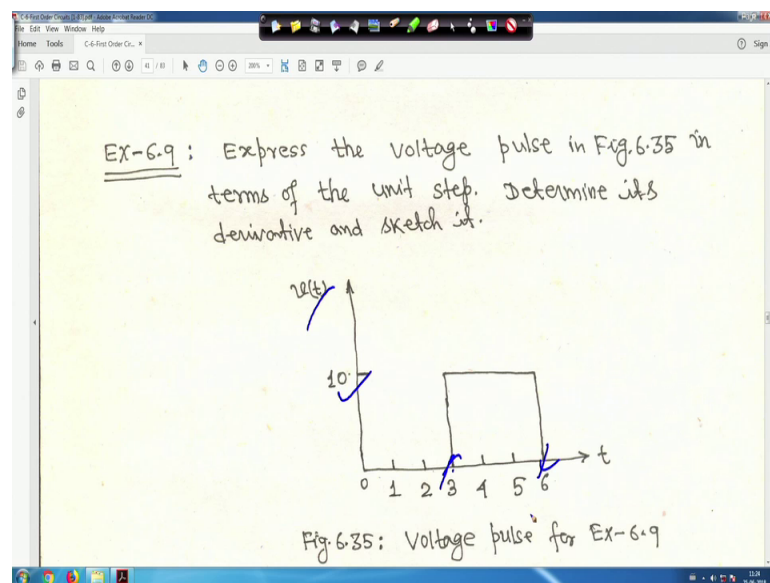 C-6-First Order Circuits (1-83).pdf - Adobe Acrobat Reader DC
File Edit View Window Help
Home Tools C-6-First Order Cir... × Sign
41 / 83 200%
Ex-6.9 : Express the voltage pulse in Fig.6.35 in
terms of the unit step. Determine its
derivative and sketch it.
v(t)
10
t
0 1 2 3 4 5 6
Fig. 6.35: Voltage pulse for Ex-6.9
11:24